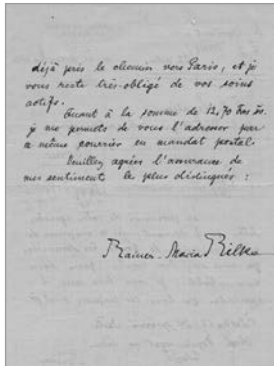 déjà pris le chemin vers Paris, et je
vous reste très-obligé de vos soins
actifs.
Quant à la somme de 12,70 frcs
je me permets de vous l'adresser par
ce même courrier en mandat postal.
Veuillez agréer l'assurance de
mes sentiment le plus distingués :
Rainer Maria Rilke